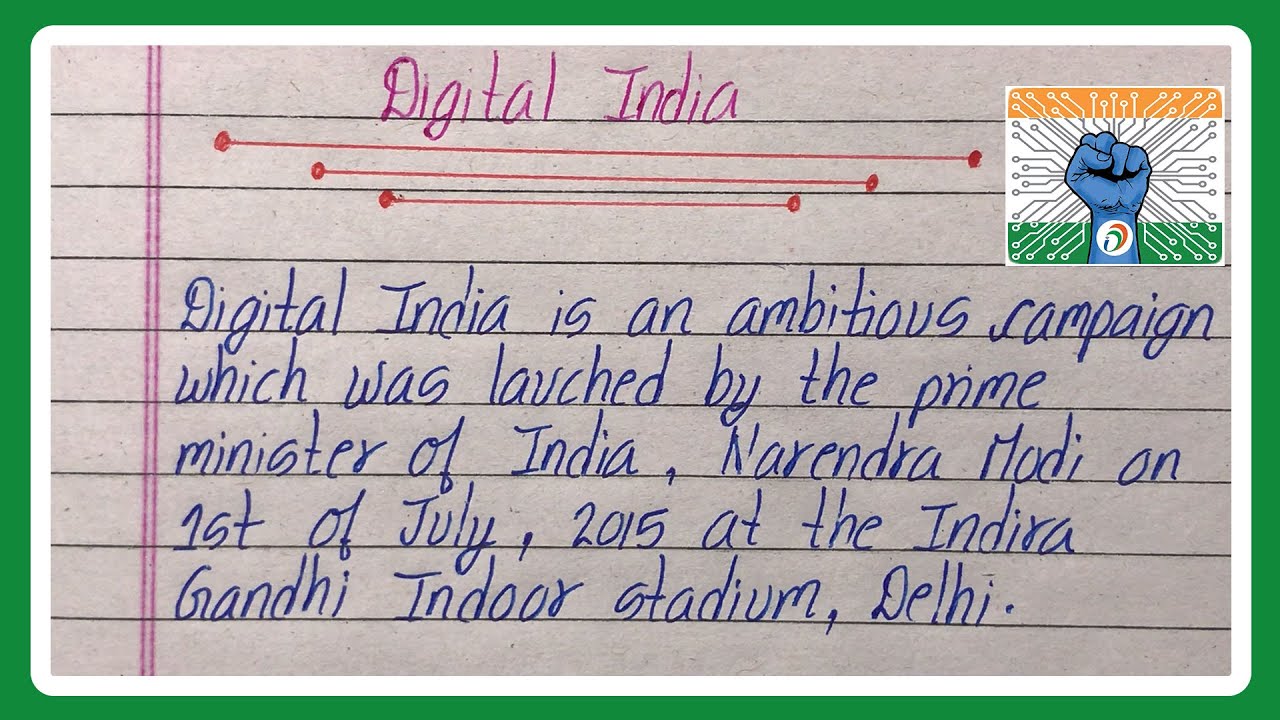 Digital India
Digital India is an ambitious campaign
which was lauched by the prime
minister of India, Narendra Modi on
1st of July, 2015 at the Indira
Gandhi Indoor stadium, Delhi.